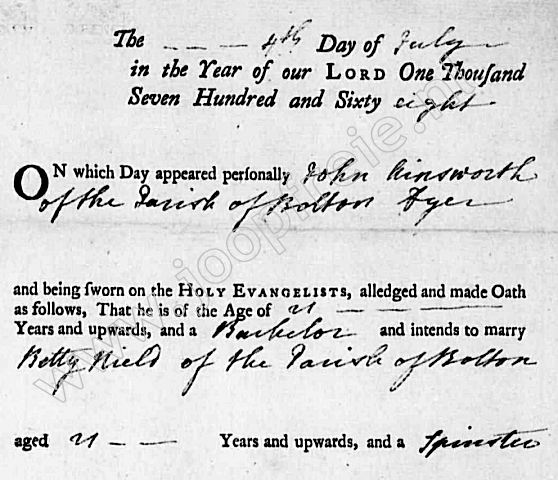 The - - - 4th Day of July
in the Year of our LORD One Thouſand
Seven Hundred and Sixty eight
ON which Day appeared perſonally John Ainsworth
of the Parish of Bolton Dyer
and being ſworn on the HOLY EVANGELISTS, alledged and made Oath
as follows, That he is of the Age of 21 - - -
Years and upwards, and a Bachelor and intends to marry
Betty Nield of the Parish of Bolton
aged 21 - - Years and upwards, and a Spinster